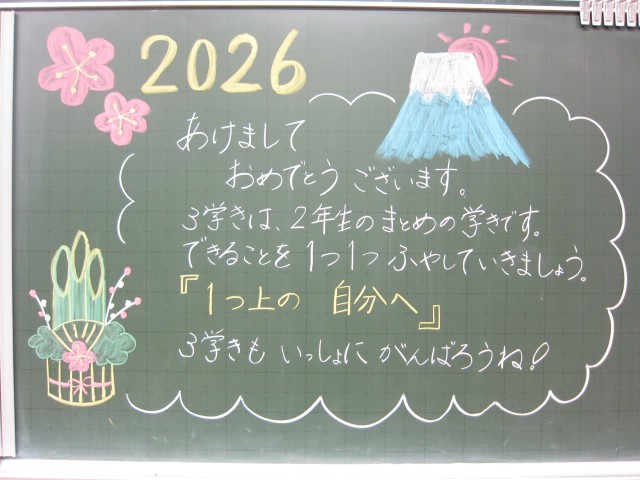 2026
あけまして
おめでとうございます。
3学きは、2年生のまとめの学きです。
できることを1つ1つふやしていきましょう。
『1つ上の 自分へ』
3学きも いっしょに がんばろうね!